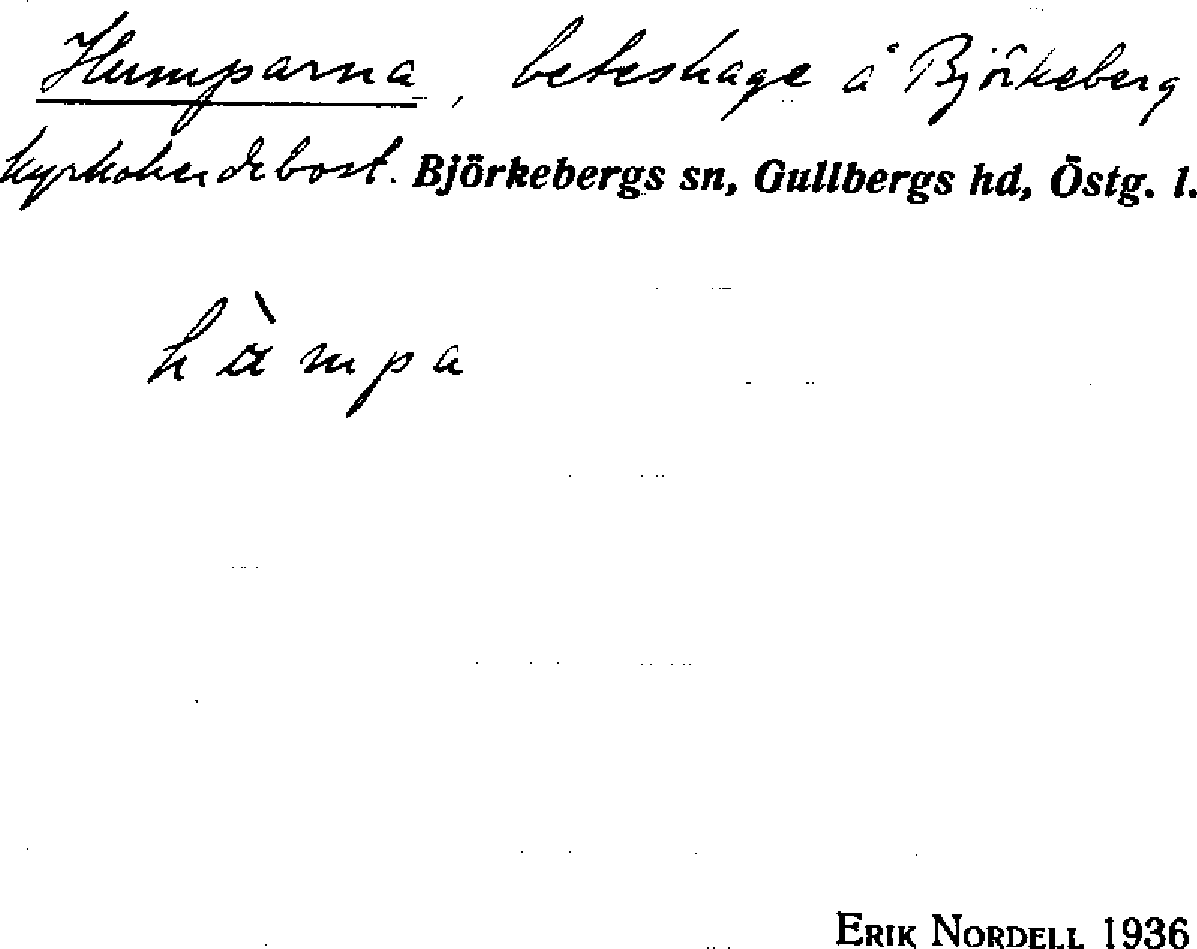 Humparna, beteshage å Björkeberg
kyrkoherdebost. Björkebergs sn, Gullbergs hd, Östg. l.
hàmpa
ERIK NORDELL 1936